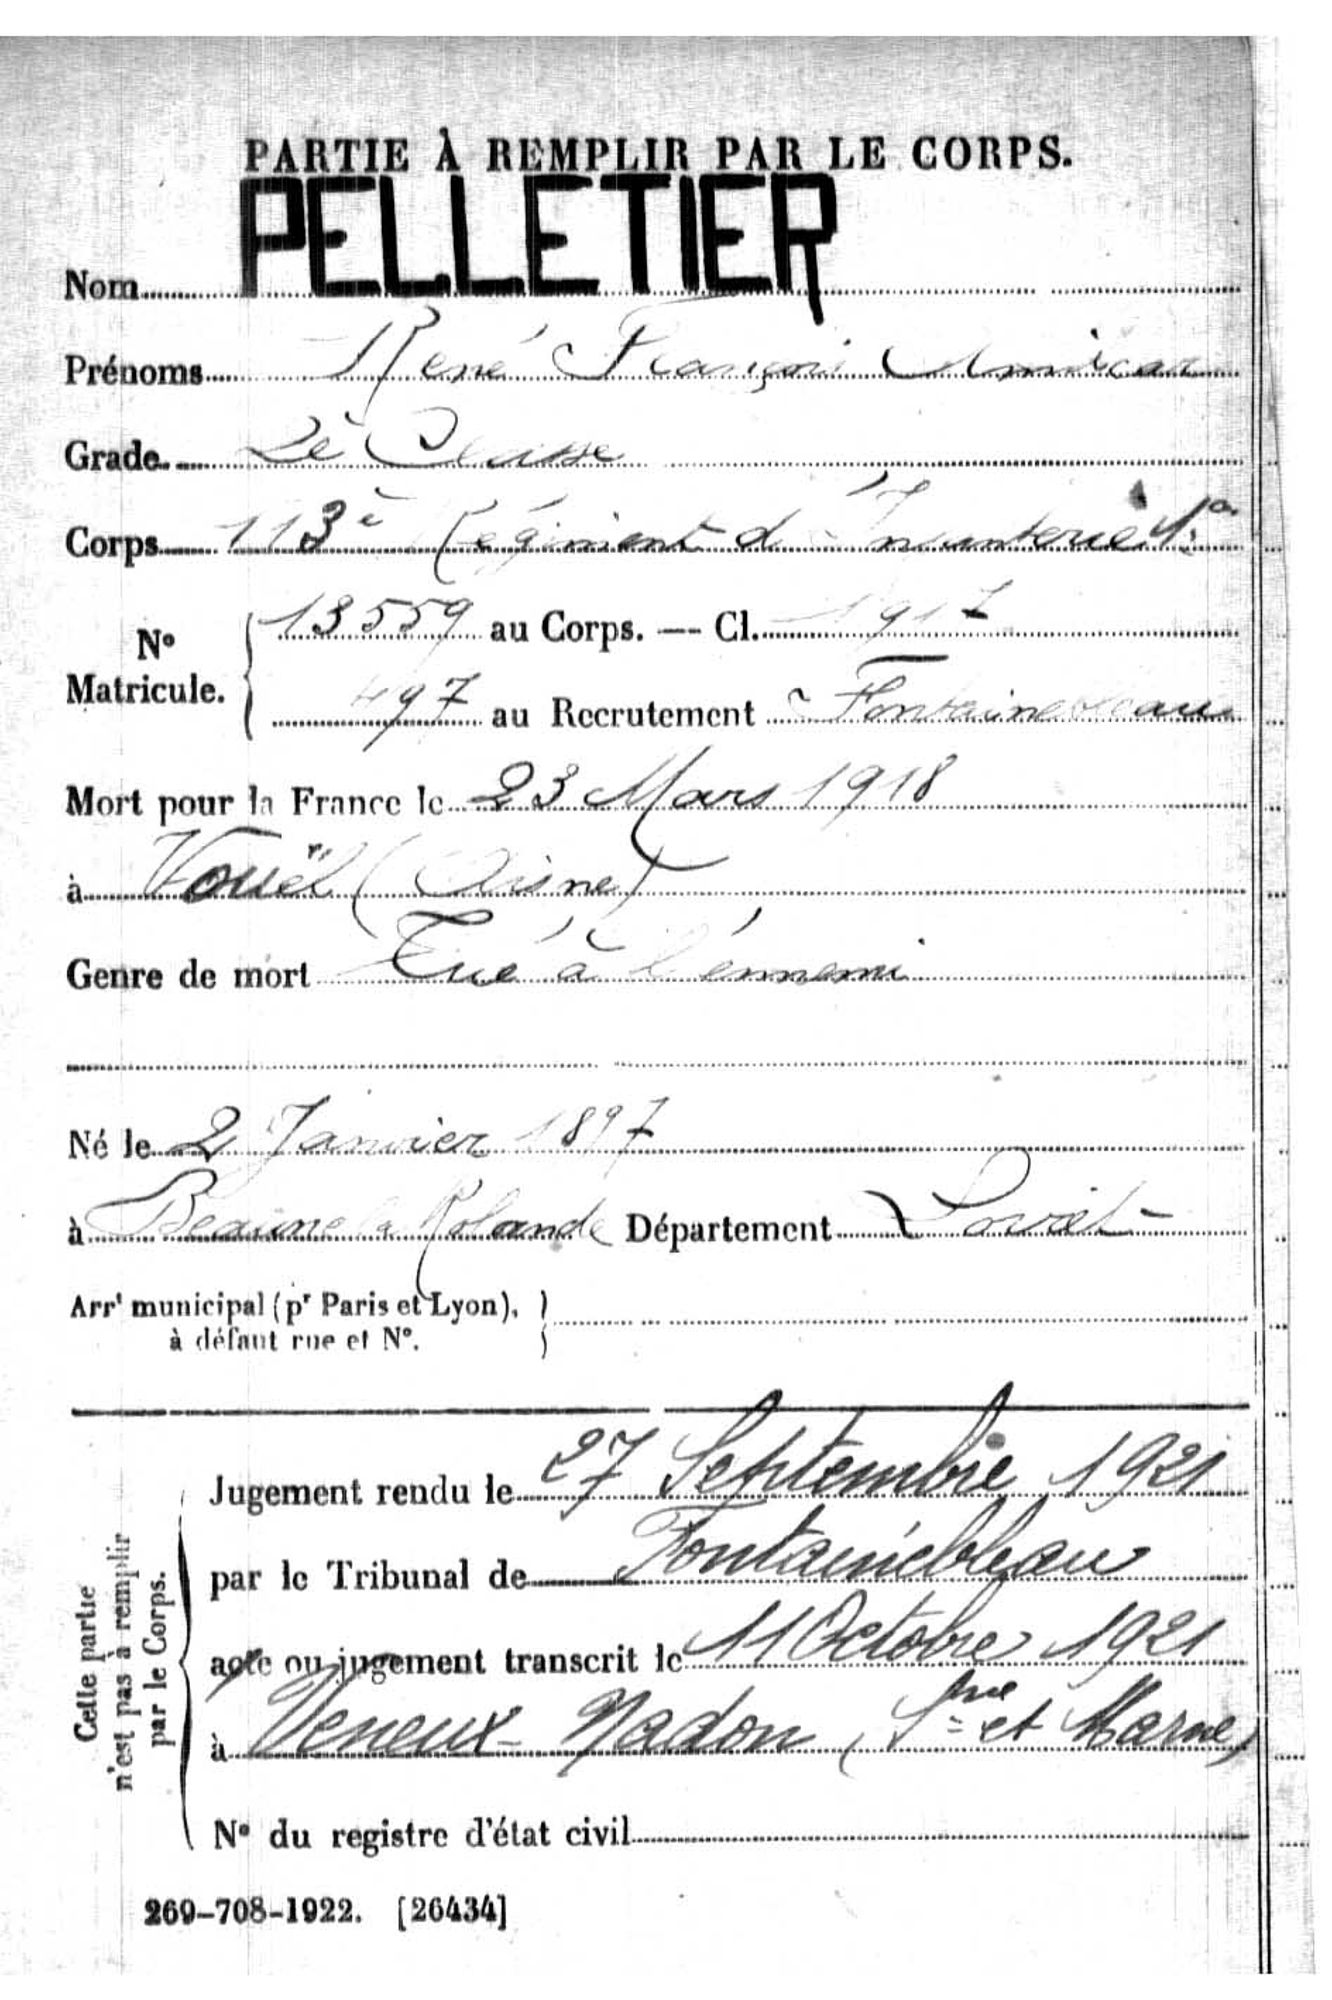 PARTIE À REMPLIR PAR LE CORPS.
Nom PELLETIER
Prénoms René François Amilcar
Grade 2è Classe
Corps 113è Régiment d'Infanterie
N° Matricule. 13559 au Corps. — Cl. 1917
497 au Recrutement Fontainebleau
Mort pour la France le 23 Mars 1918
à Vouël (Aisne)
Genre de mort Tué à l'énnemi
Né le 2 Janvier 1897
à Beaune la Rolande Département Loiret
Arrt municipal (pr Paris et Lyon),
à défaut rue et N°.
Cette partie
n'est pas à remplir
par le Corps.
Jugement rendu le 27 Septembre 1921
par le Tribunal de Fontainebleau
acte ou jugement transcrit le 11 Octobre 1921
à Veneux-Nadon (Sne et Marne)
N° du registre d'état civil
269-708-1922. [26434]